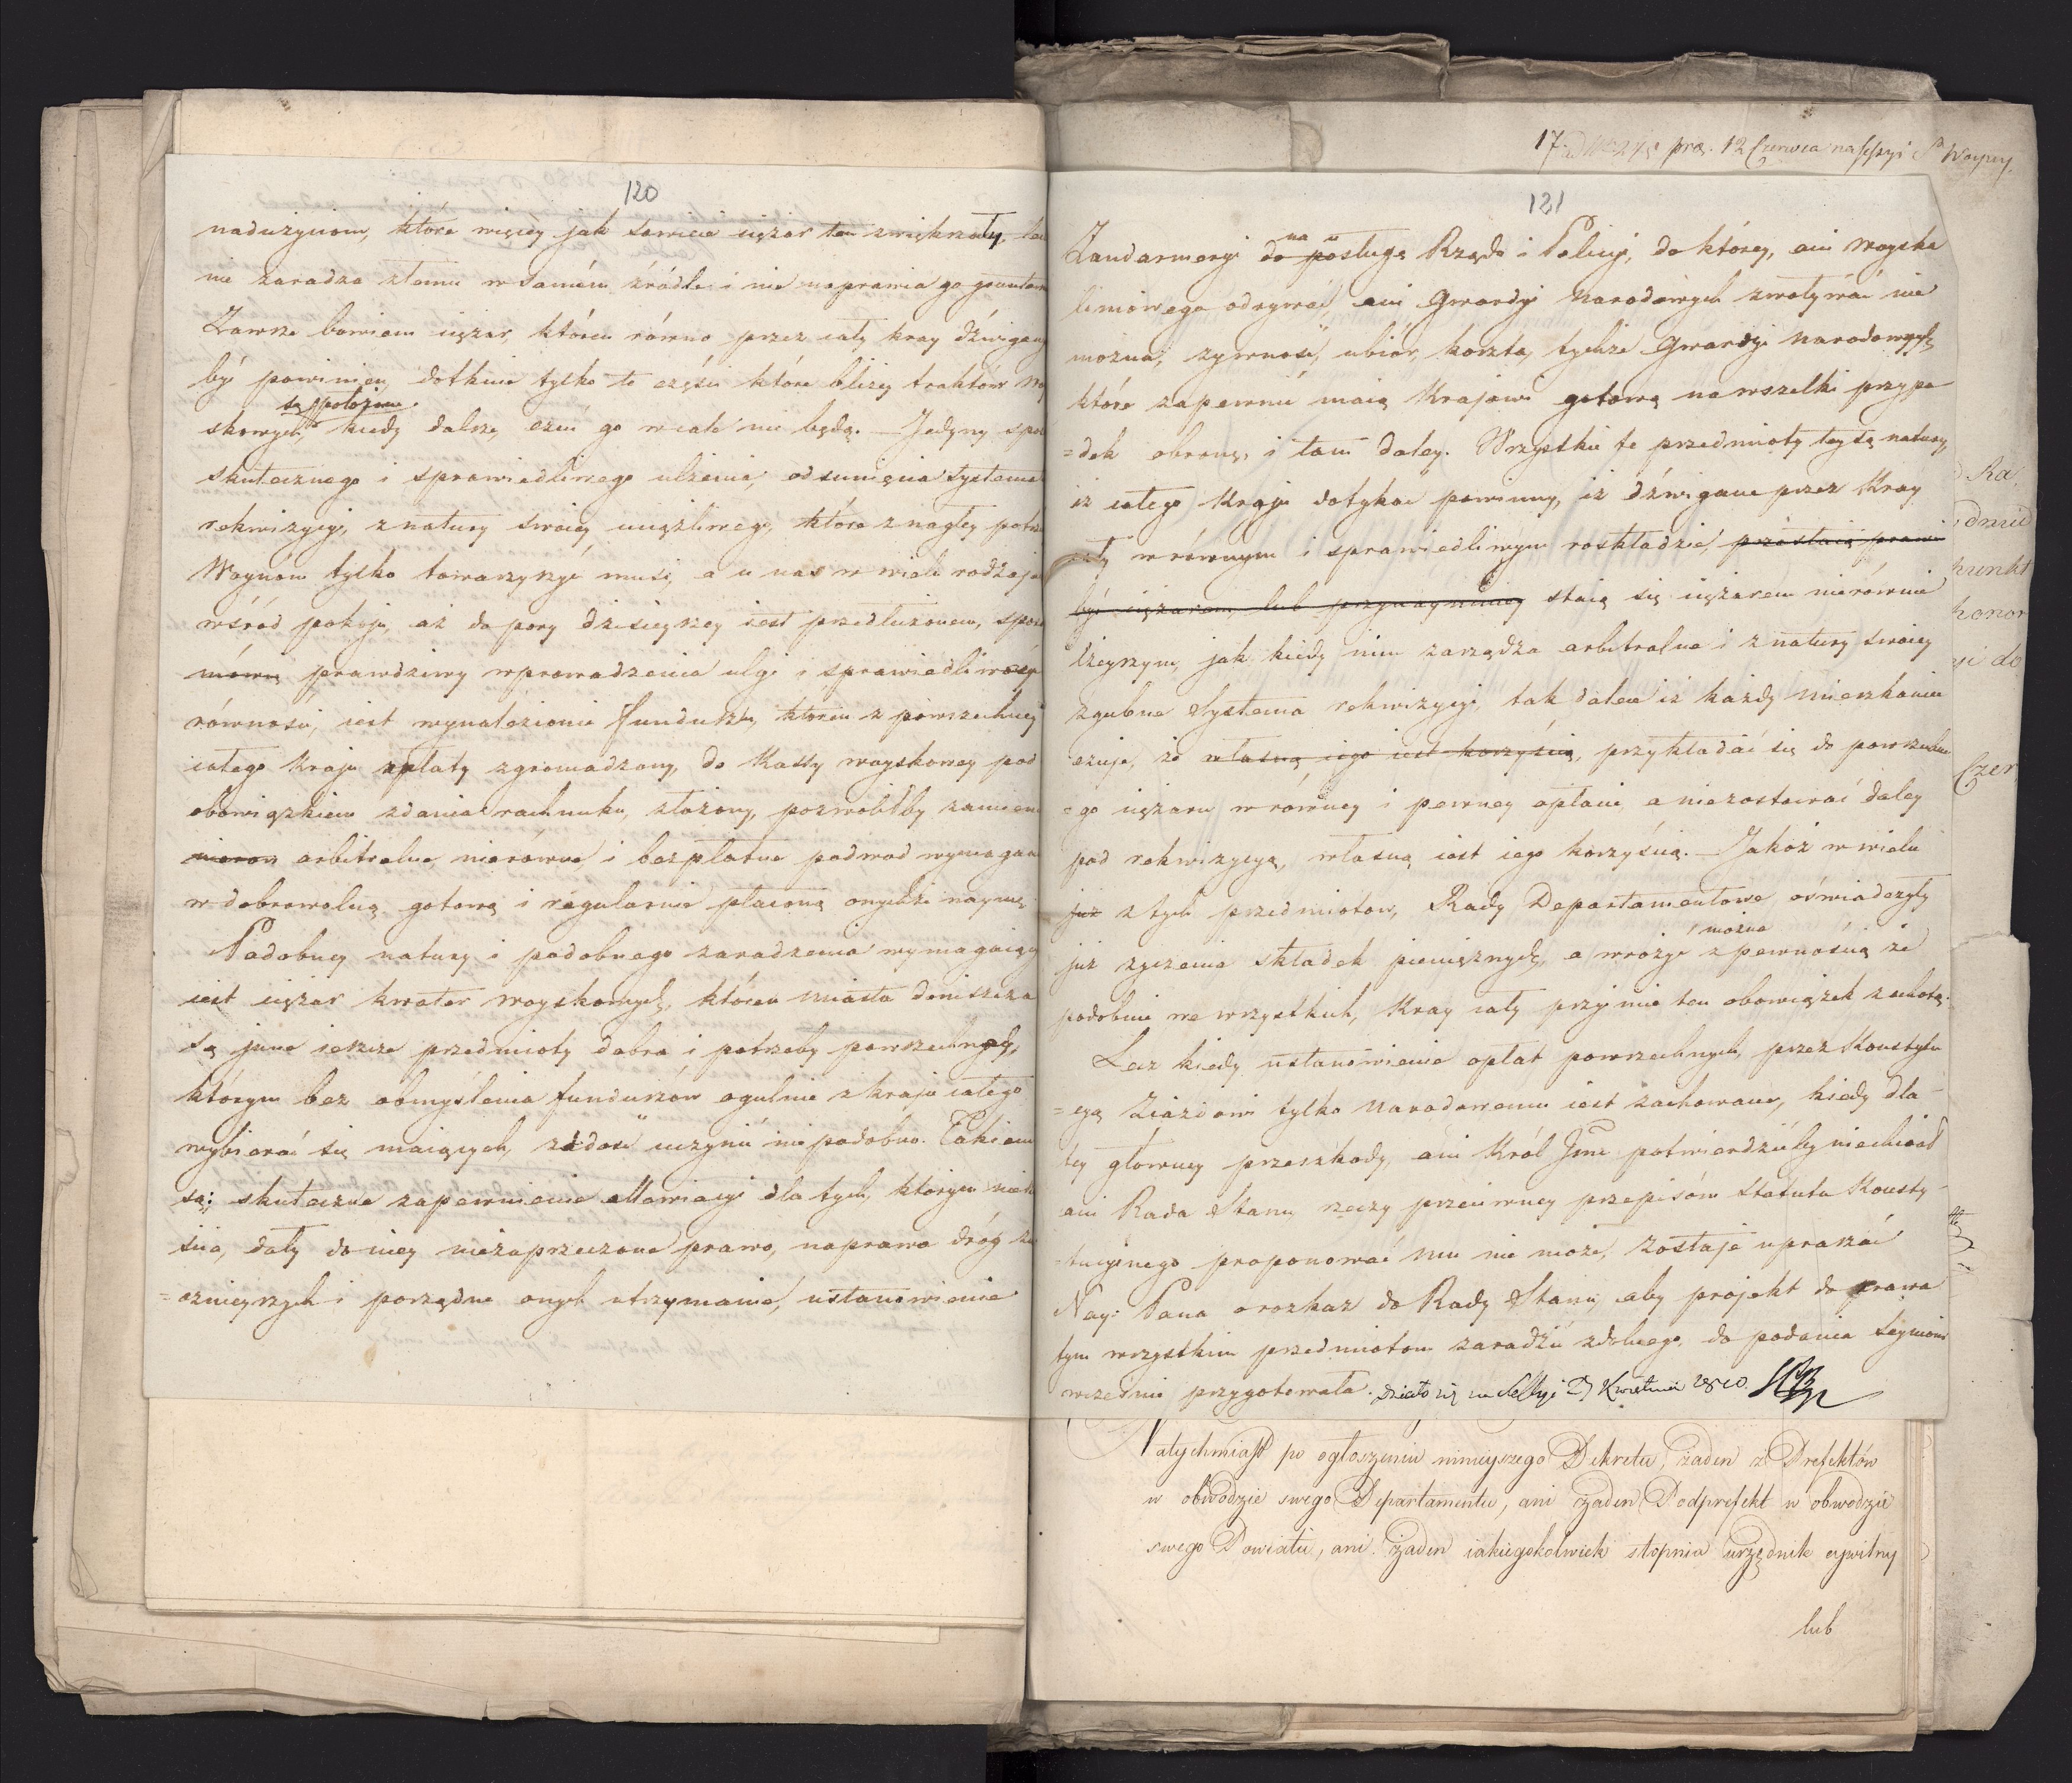 120
nadużyciom, które więcéy jak sowicie ciężar ten zwiększały,
nie zaradza złemu w samém źródle i nie naprawia go
Zawsze bowiem ciężar, któren równo przez cały kray dźwigany
być powinien, dotknie tylko te części które bliżey traktów
są położone
skowych, kiedy dalsze, czuć go wcale nie będą. Jedyny
skutecznego i sprawiedliwego ulżenia, odsunięcia systema
rekwizycyi, z natury swoiey uciążliwego, które z nagłey
Woynom tylko towarzyszyć musi, a u nas w wielu rodzaja
wśród pokoju, aż do pory dzisieyszey iest przedłużonem,
mówię prawdziwy wprowadzenia ulgi i sprawiedliwości
równości, iest wynalezienie funduszu, któren z powszechney
całego kraju opłaty zgromadzony, do Kassy woyskowey pod
obowiązkiem zdania rachunku, złożony, pozwoliłby
arbitralne, nierówne, i bezpłatne podwod wymagan
w dobrowolną gotową i regularnie płaconą onychże naymę
Podobney natury i podobnego zaradzenia wymagaiący
iest ciężar kwater woyskowych, któren miasta
Są inne ieszcze przedmioty dobra i potrzeby powszechney,
którym bez obmyślenia funduszów ogulnie z kraju całego
wybierać się maiących, zadosić uczynić niepodobno. Takiem
są; skuteczne zapewnienie allewiacyi dla tych, którym
dały do niey niezaprzeczone prawo, naprawa dróg
=cznieyszych i porządne onych utrzymanie, ustanowienie
17 pras. 12 Czerwca na sessyi
121
na u
Żandarmeryi do posługę Rządu i Policyi, do którey, ani woyska
liniowego odrywać, ani Gwardyi Narodowych zwoływać nie
można; żywność, ubiór, koszta, tychże Gwardyi Narodowych,
które zapewnić maią Krajowi gotową na wszelki przypa
=dek obronę, i tam daley. Wszystkie te przedmioty tey są natury,
iż całego kraju dotykać powinny, iż dźwigane przez Kray
cały w równym i sprawiedliwym roskładzie,
być ciężarem, lub przynaymniey staią się ciężarem nierównie
lżeyszym, jak kiedy nim zarządza arbitralne i z natury swoiey
zgubne systema rekwizycyi, tak dalece iż każdy mieszkaniec
czuje, że własną iego iest korzyścią, przykładać się do powszechne
=go ciężaru w równey i pewney opłacie, a niezostawać daley
pod rekwizycyą, własną iest iego korzyścią. Jakoż w wielu
już z tych przedmiotów, Rady Departamentowe oświadczyły
można
już życzenia składek pieniężnych, a wróżyć z pewnością że
podobnie we wszystkich, Kray cały przyjmie ten obowiązek z ochotą.
Lecz kiedy ustanowienie opłat powszechnych, przez Konstytu
=cyą Ziazdowi tylko Narodowemu iest zachowane, kiedy dla
tey głowney przeszkody, ani Król Jmć potwierdzićby niechciał
ani Rada Stanu rzeczy przeciwney przepisóm Statutu Konsty-
=tucyinego proponować mu nie może, zostaje upraszać
Nay: Pana o rozkaz do Rady Stanu, aby projekt do prawa
tym wszystkim przedmiotom zaradzić zdolnego, do podania seymowi
wcześnie przygotowała. Działo się na Sessyi D Kwietnia 1810.
Natychmiast po ogłoszeniu ninieyszego Dekretu, żaden z Prefektów
w obwodzie swego Departamentu, ani żaden Podprefekt w obwodzie
swego Powiatu, ani żaden iakiegokolwiek stopnia urzędnik cywilny
lub